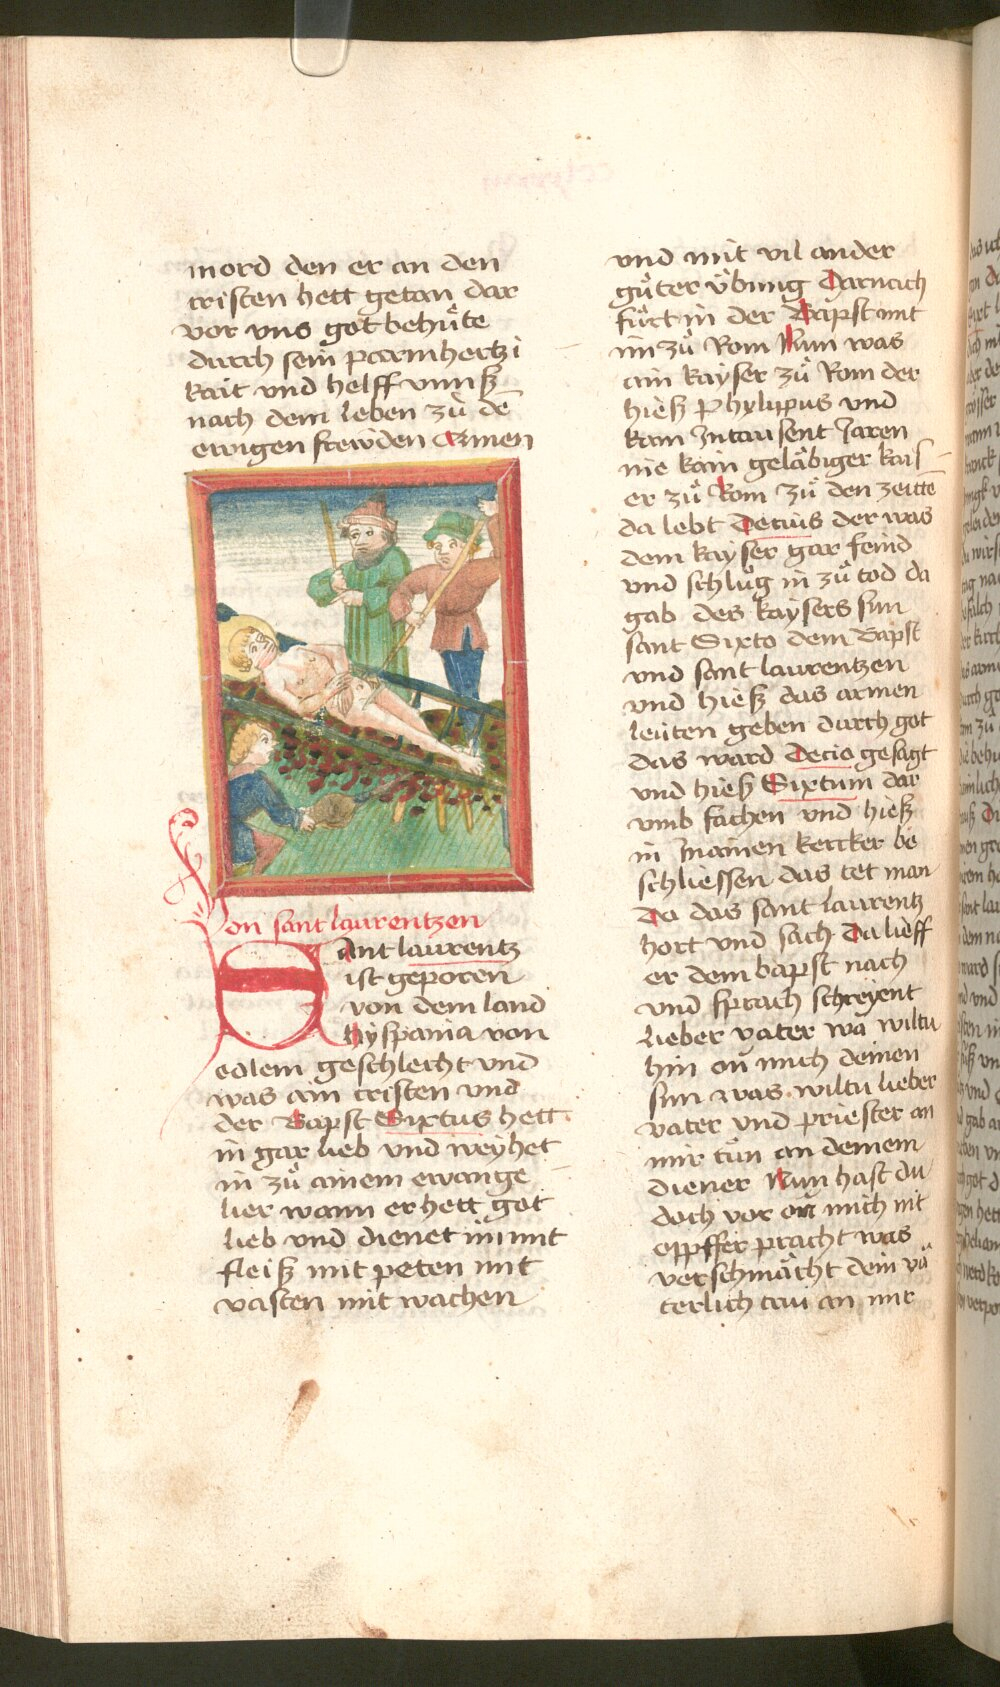 mord den er an den
cristen hett getan dar
vor vns got behu̎te
durch sein parmhertzi
kait vnd helff vnnß
nach dem leben zu̎ dē
ewigen frewden Amen
Von sant laurentzen
Sant laurentz
ist geporen
von dem land
hyspania von
edlem geschlecht vnd
was ain cristen vnd
der Bapst Sixtus hett
in gar lieb vnd weyhet
in zu̎ ainem ewange
lier wann er hett got
lieb vnd dienet im mit
fleiß mit peten mit
vasten mit wachen
vnd mit vil ander
gu̎ter v̈bung Darnach
fu̎rt in der Bapst mit
im zu̎ Rom Nun was
ain kayser zu̎ Rom der
hieß Phylippus vnd
kam In tausent Jaren
nie kain gela̎biger kais
er zu̎ Rom zu̎ den zeittē
da lebt Decius der was
dem kayser gar feind
vnd schlu̎g in zu̎ tod da
gab des kaysers sun
sant Sixto dem Bapst
vnd sant laurentzen
vnd hieß das armen
leüten geben durch got
das ward Decio gesagt
vnd hieß Sixtum dar
vmb fachen vnd hieß
in Inainen kercker be
schliessen das tet man
Da das sant laurentz
hort vnd sach Da lieff
er dem bapst nach
vnd sprach schreyent
lieber vater wa wiltu
hin on mich deinen
sun was wiltu lieber
vater vnd priester an
mir tu̎n an deinem
diener Nun hast du
doch vor on mich nit
opffer pracht was
verschma̎cht dein va̎
terlich trui an mir